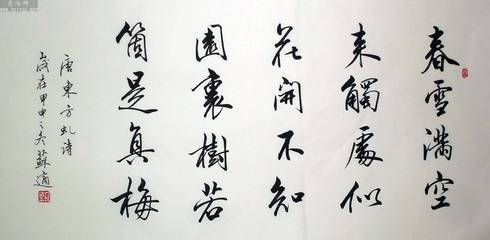 春雪滿空
来觸處似
花開不知
園裏樹若
箇是真梅
唐東方虬诗
歲在甲申之冬蘇適